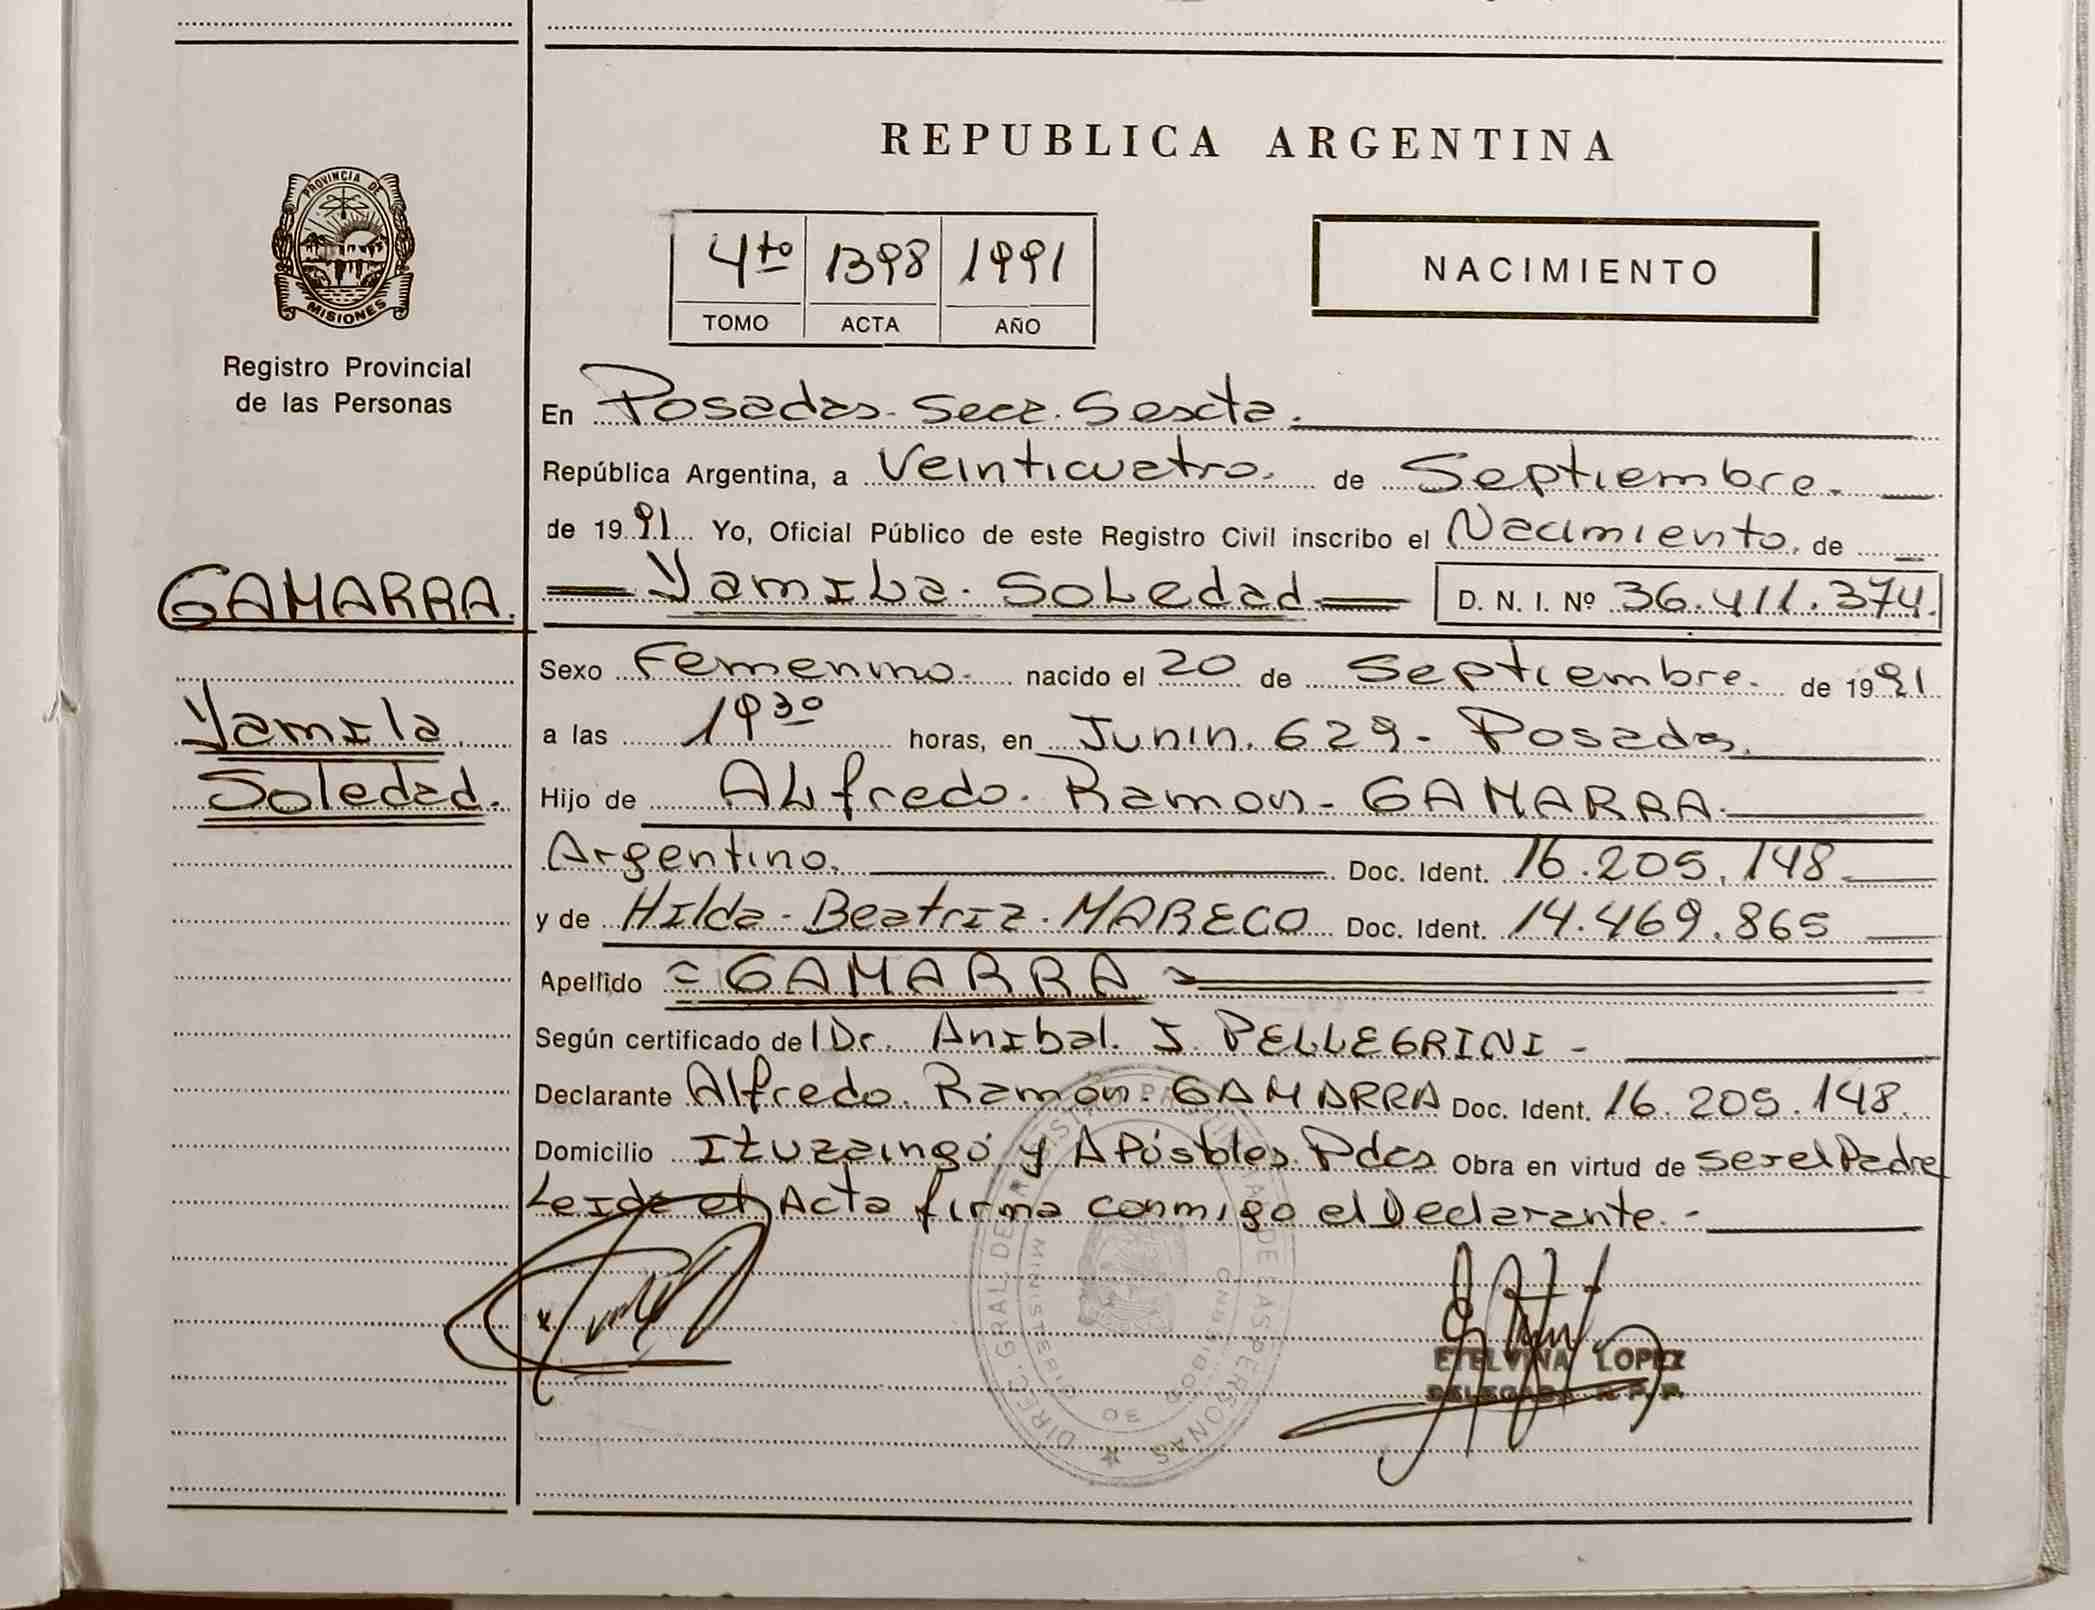 REPUBLICA ARGENTINA
PROVINCIA DE
MISIONES
Registro Provincial
de las Personas
4to 1398 1991
TOMO ACTA AÑO
NACIMIENTO
En Posadas. Secc. Sexta.
República Argentina, a Veinticuatro. de Septiembre.
de 1991 Yo, Oficial Público de este Registro Civil inscribo el Nacimiento, de
GAMARRA.
Yamila
Soledad.
Yamila. Soledad D. N. I. Nº 36.411.374.
Sexo Femenino. nacido el 20 de Septiembre. de 1991
a las 19 30 horas, en Junin. 629 - Posadas.
Hijo de Alfredo. Ramon - GAMARRA
Argentino. Doc. Ident. 16.205.148
y de Hilda - Beatriz. MARECO Doc. Ident. 14.469.865
Apellido = GAMARRA =
Según certificado del Dr. Anibal. J. PELLEGRINI -
Declarante Alfredo. Ramon. GAMARRA Doc. Ident. 16.205.148.
Domicilio Ituzaingó y Apóstoles. Pdas Obra en virtud de ser el Padre
Leida el Acta firma conmigo el Declarante. -
ETELVINA LOPEZ
DELEGADA R.P.P.